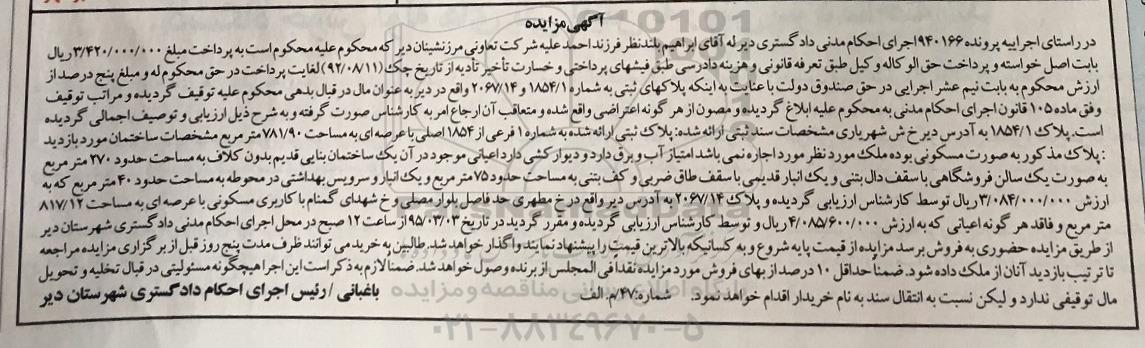 آگهی مزایده
در راستای اجراییه پرونده ۹۴۰۱۶۶ اجرای احکام مدنی دادگستری دیر له آقای ابراهیم بلندنظر فرزند احمد علیه شرکت تعاونی مرزنشینان دیر که محکوم علیه محکوم است به پرداخت مبلغ ۳/۴۲۰/۰۰۰/۰۰۰ ریال
بابت اصل خواسته و پرداخت حق الوکاله وکیل طبق تعرفه قانونی و هزینه دادرسی طبق فیشهای پرداختی و خسارت تأخیر تأدیه از تاریخ چک (۹۲/۰۸/۱۱) لغایت پرداخت در حق محکوم له و مبلغ پنج درصد از
ارزش محکوم به بابت نیم عشر اجرایی در حق صندوق دولت با عنایت به اینکه پلاکهای ثبتی به شماره ۱۸۵۴/۱ و ۲۰۶۷/۱۴ واقع در دیر به عنوان مال در قبال بدهی محکوم علیه توقیف گردیده و مراتب توقیف
وفق ماده ۱۰۵ قانون اجرای احکام مدنی به محکوم علیه ابلاغ گردیده و مصون از هر گونه اعتراضی واقع شده و متعاقب آن ارجاع امر به کارشناس صورت گرفته و به شرح ذیل ارزیابی و توصیف اجمالی گردیده
است. پلاک ۱۸۵۴/۱ به آدرس دیر خ ش شهریاری مشخصات سند ثبتی ارائه شده: پلاک ثبتی ارائه شده به شماره ۱ فرعی از ۱۸۵۴ اصلی با عرصه ای به مساحت ۷۸۱/۹۰ متر مربع مشخصات ساختمان مورد بازدید
: پلاک مذکور به صورت مسکونی بوده ملک مورد نظر مورد اجاره نمی باشد امتیاز آب و برق دارد و دیوار کشی دارد اعیانی موجود در آن یک ساختمان بنایی قدیم بدون کلاف به مساحت حدود ۲۷۰ متر مربع
به صورت یک سالن فروشگاهی با سقف دال بتنی و یک انبار قدیمی با سقف طاق ضربی و کف بتنی به مساحت حدود ۷۵ متر مربع و یک انبار و سرویس بهداشتی در محوطه به مساحت حدود ۴۰ متر مربع که به
ارزش ۳/۰۸۴/۰۰۰/۰۰۰ ریال توسط کارشناس ارزیابی گردیده و پلاک ۲۰۶۷/۱۴ به آدرس دیر واقع در خ مطهری حد فاصل بلوار مصلی و خ شهدای گمنام با کاربری مسکونی با عرصه ای به مساحت ۸۱۷/۱۲
متر مربع و فاقد هر گونه اعیانی که به ارزش ۴/۰۸۵/۶۰۰/۰۰۰ ریال و توسط کارشناس ارزیابی گردیده و مقرر گردید در تاریخ ۹۵/۰۳/۰۳ از ساعت ۱۲ صبح در محل اجرای احکام مدنی دادگستری شهرستان دیر
از طریق مزایده حضوری به فروش برسد مزایده از قیمت پایه شروع و به کسانیکه بالاترین قیمت را پیشنهاد نمایند واگذار خواهد شد. طالبین به خرید می توانند ظرف مدت پنج روز قبل از برگزاری مزایده مراجعه
تا ترتیب بازدید آنان از ملک داده شود. ضمناً حداقل ۱۰ درصد از بهای فروش مورد مزایده نقداً فی المجلس از برنده وصول خواهد شد. ضمناً لازم به ذکر است این اجرا هیچگونه مسئولیتی در قبال تخلیه و تحویل
مال توقیفی ندارد و لیکن نسبت به انتقال سند به نام خریدار اقدام خواهد نمود. شماره: ۴۷/م. الف باغبانی / رئیس اجرای احکام دادگستری شهرستان دیر
پایگاه اطلاع رسانی مناقصه و مزایده
۰۲۱-۸۸۳۴۹۶۷۰-۵